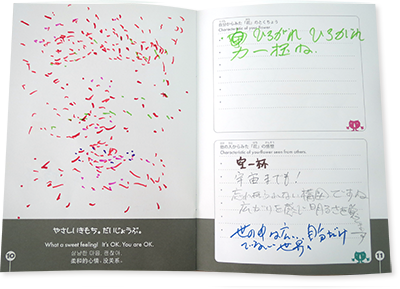 やさしいきもち。だいじょうぶ。
What a sweet feeling! It's OK. You are OK.
상냥한 마음. 괜찮아.
柔和的心情。没关系。
10
自分からみた「花」のとくちょう
Characteristics of your flower
ひろがれ ひろがれ
力一杯ね.
他の人からみた「花」の感想
Characteristics of your flower seen from others.
空一杯
宇宙までも!
広がりを感じ 明るさを
世の中は広い 自分だけ
でない世界。
11